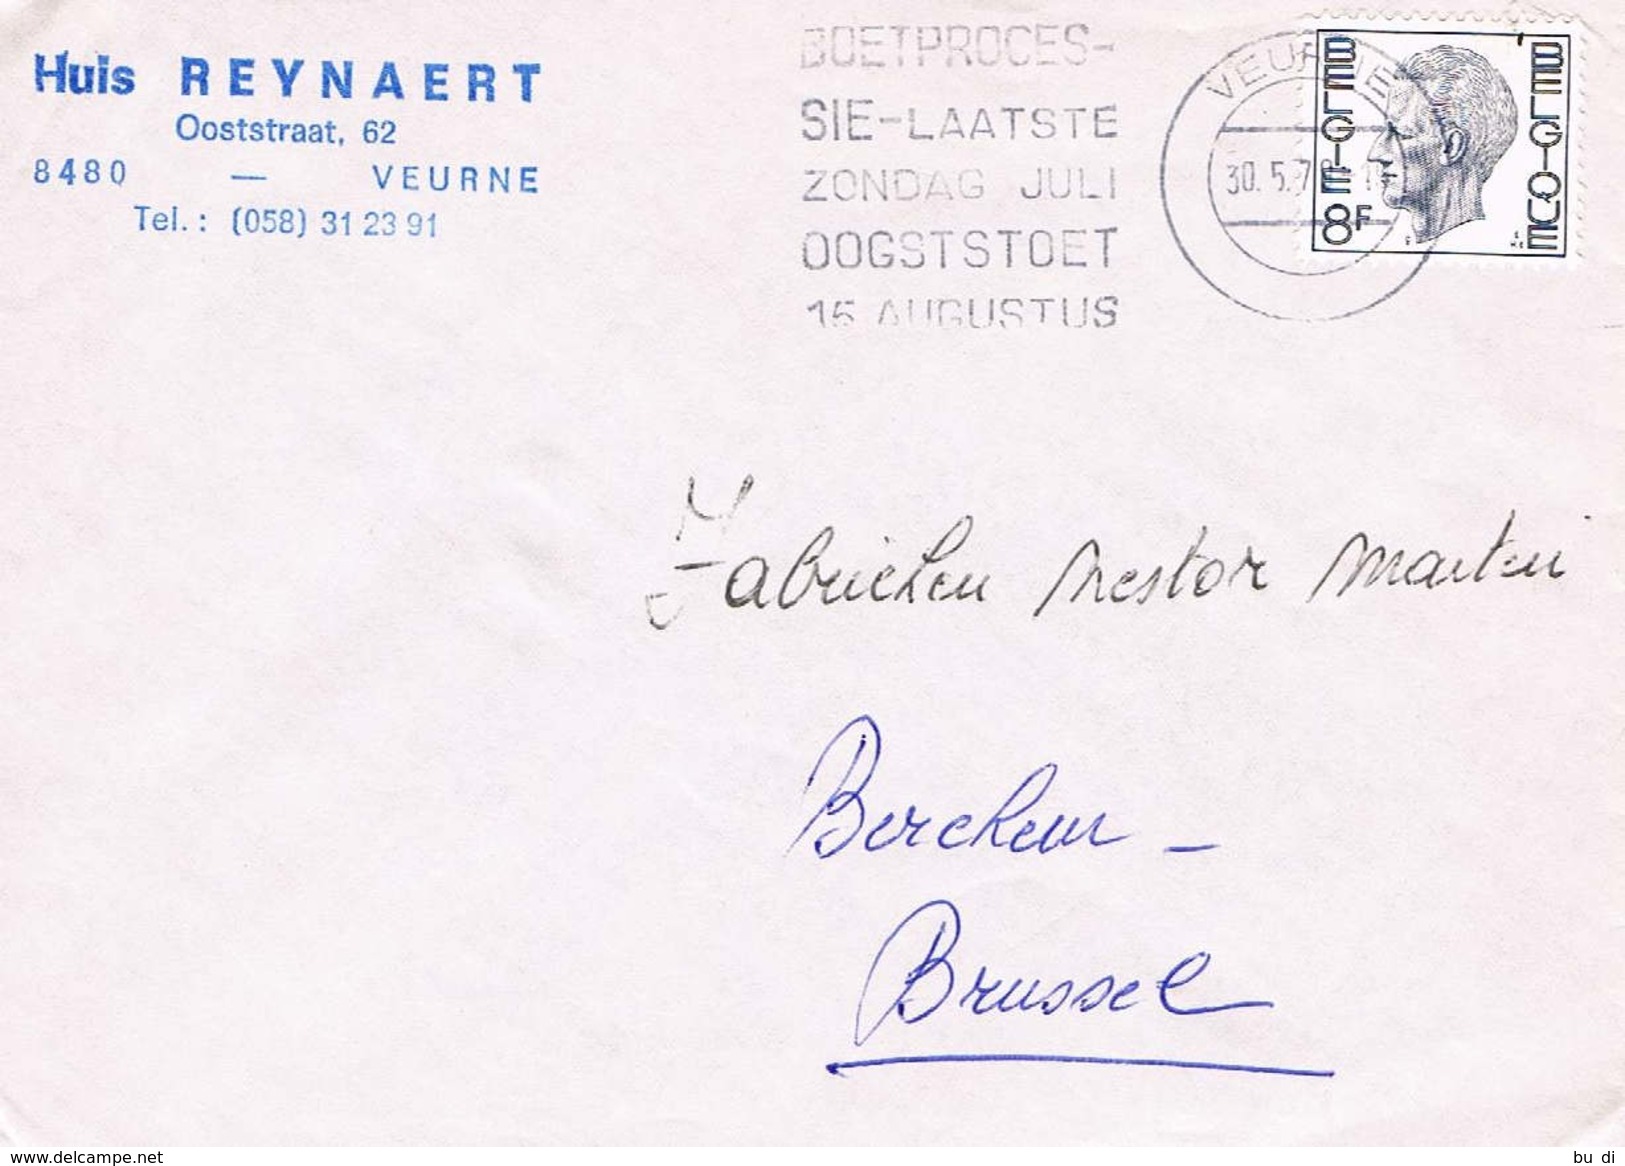 Huis REYNAERT
Ooststraat, 62
8480 — VEURNE
Tel. : (058) 31 23 91
BOETPROCES-
SIE-LAATSTE
ZONDAG JULI
OOGSTSTOET
15 AUGUSTUS
VEURNE
30. 5. 7
BELGIE
8F
BELGIQUE
Fabrieken Nestor Martin
Berchem -
Brussel
www.delcampe.net
bu di